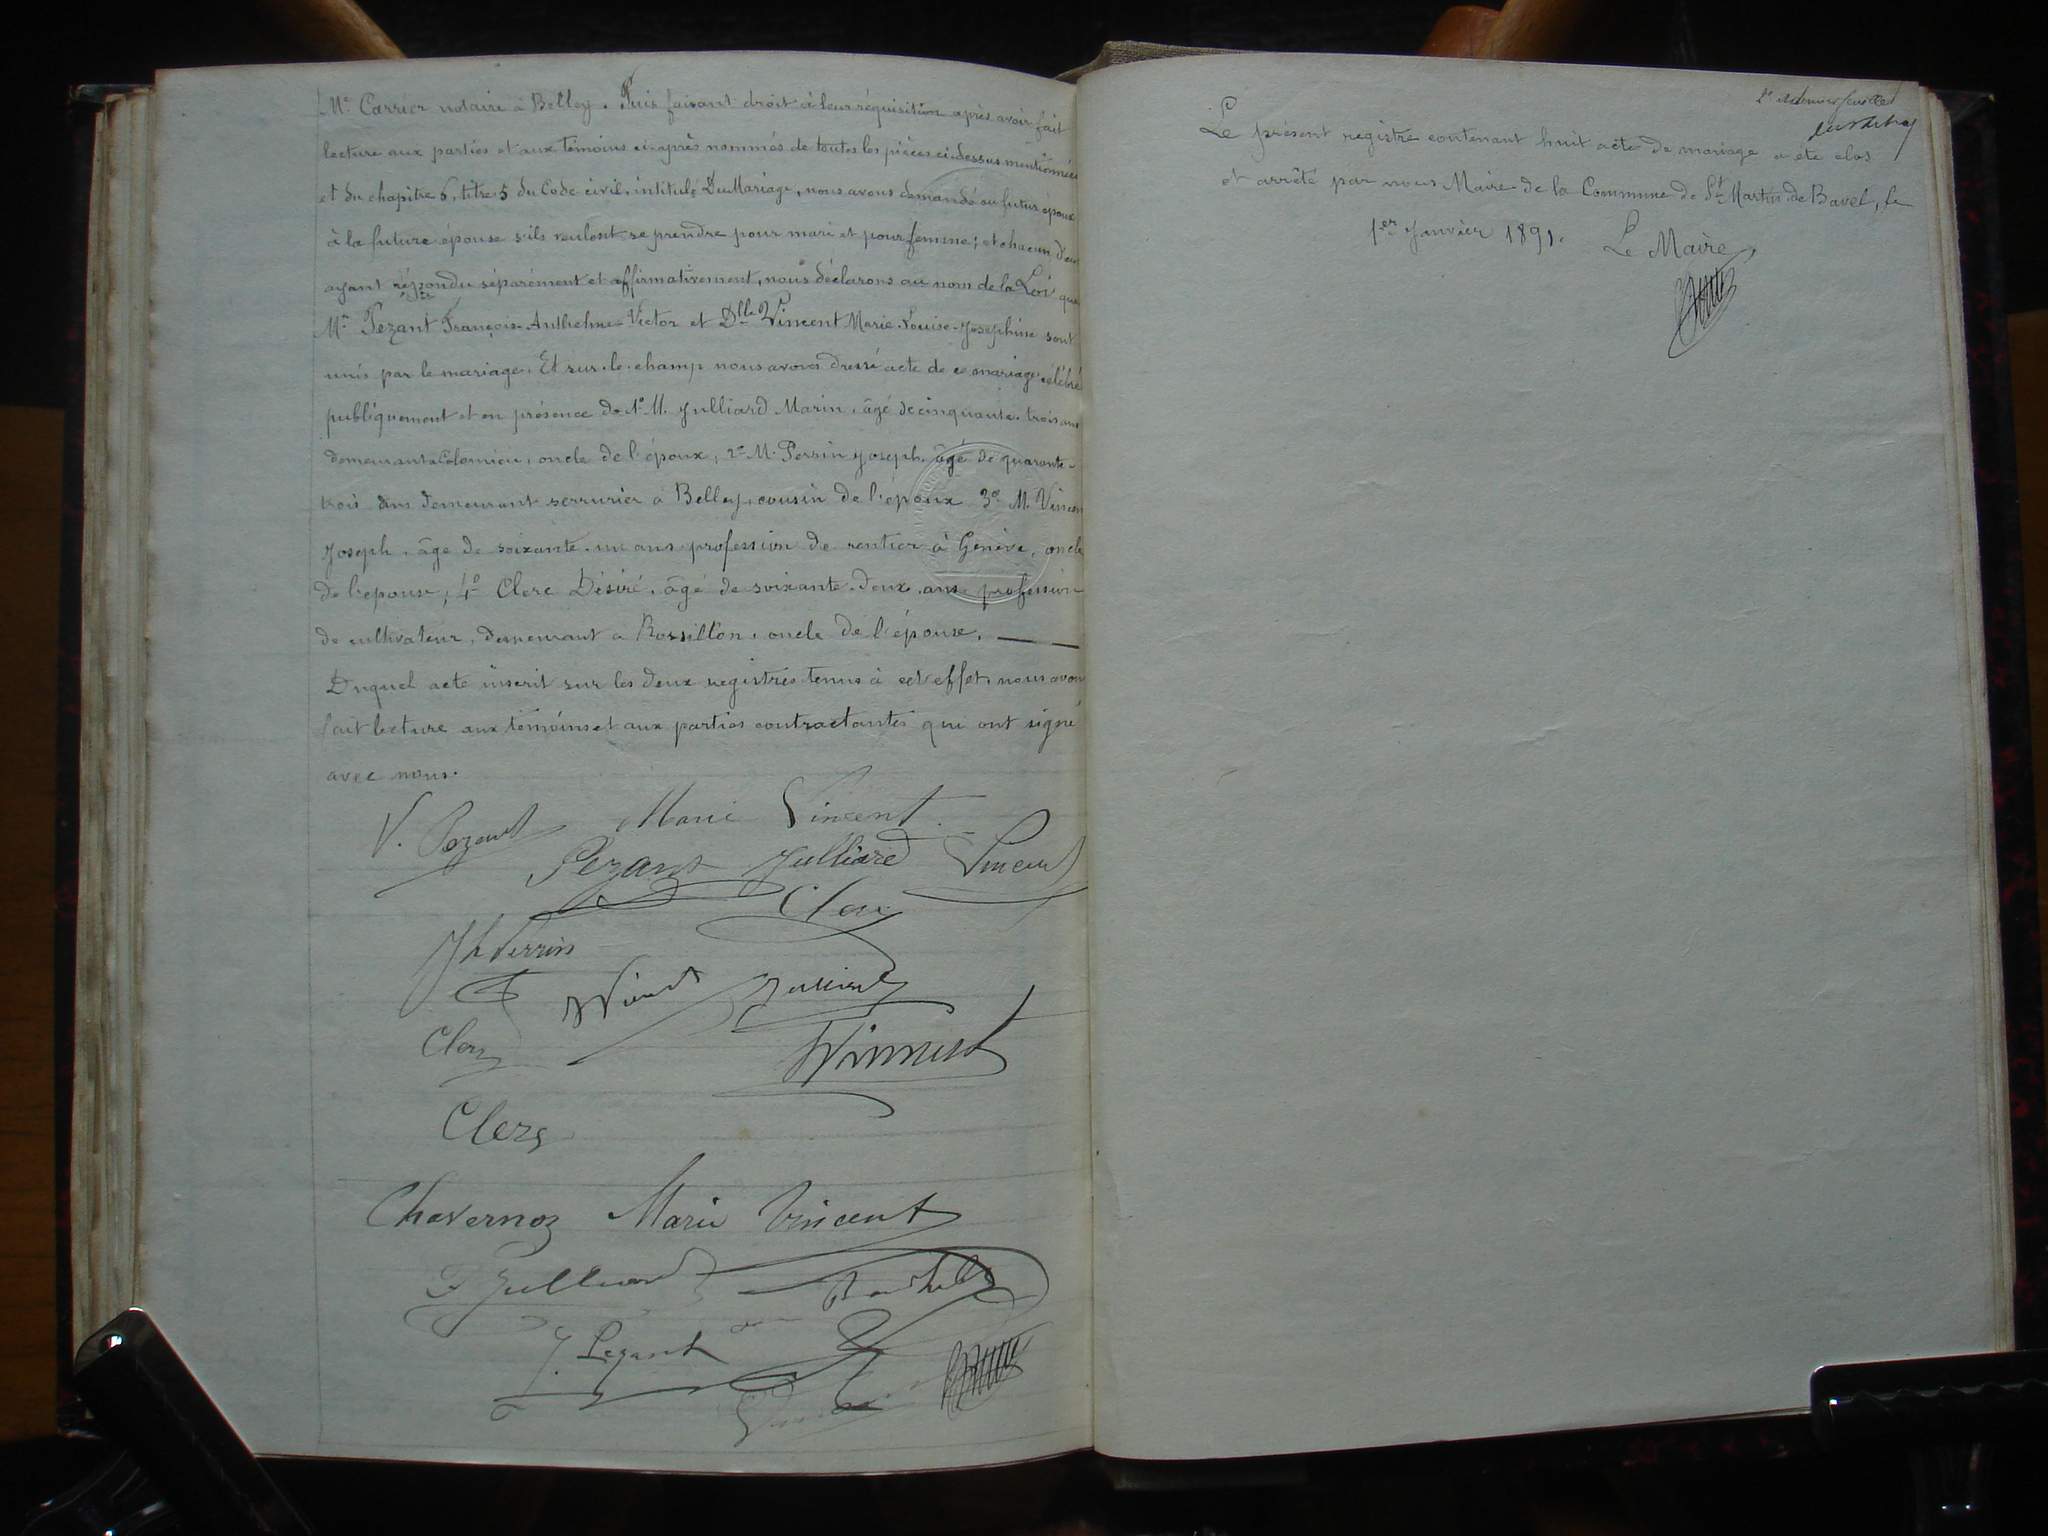 Me Carrier notaire à Belley. Puis faisant droit à leur réquisition après avoir fait
lecture aux parties et aux témoins ci-après nommés de toutes les pièces ci-dessus mentionnées
et du chapitre 6, titre 5 du Code civil, intitulé Du Mariage, nous avons demandé au futur époux
à la future épouse s'ils veulent se prendre pour mari et pour femme; et chacun d'eux
ayant répondu séparément et affirmativement, nous déclarons au nom de la Loi que
Mr Pezant François-Anthelme-Victor et Dlle Vincent Marie-Louise-Joséphine sont
unis par le mariage. Et sur-le-champ nous avons dressé acte de ce mariage célébré
publiquement et en présence de 1° M. Julliard Marin, âgé de cinquante-trois ans
demeurant à Colomieu, oncle de l'époux, 2° M. Perrin Joseph, âgé de quarante-
trois ans demeurant serrurier à Belley, cousin de l'époux 3° M. Vincent
Joseph, âgé de soixante-un ans profession de rentier à Genève, oncle
de l'épouse, 4° Clerc Désiré, âgé de soixante-deux ans profession
de cultivateur, demeurant à Rossillon, oncle de l'épouse.
Duquel acte inscrit sur les deux registres tenus à cet effet, nous avons
fait lecture aux témoins et aux parties contractantes qui ont signé
avec nous.
V. Pezant Marie Vincent
Pezant Julliard Vincent
Clerc
Jh Perrin
Clerc
Clerc
Chavernoz Marie Vincent
F Julliard
J. Pezant
Le présent registre contenant huit acte de mariage a été clos
et arrêté par nous Maire de la Commune de St Martin de Bavel, le
1er Janvier 1891. Le Maire